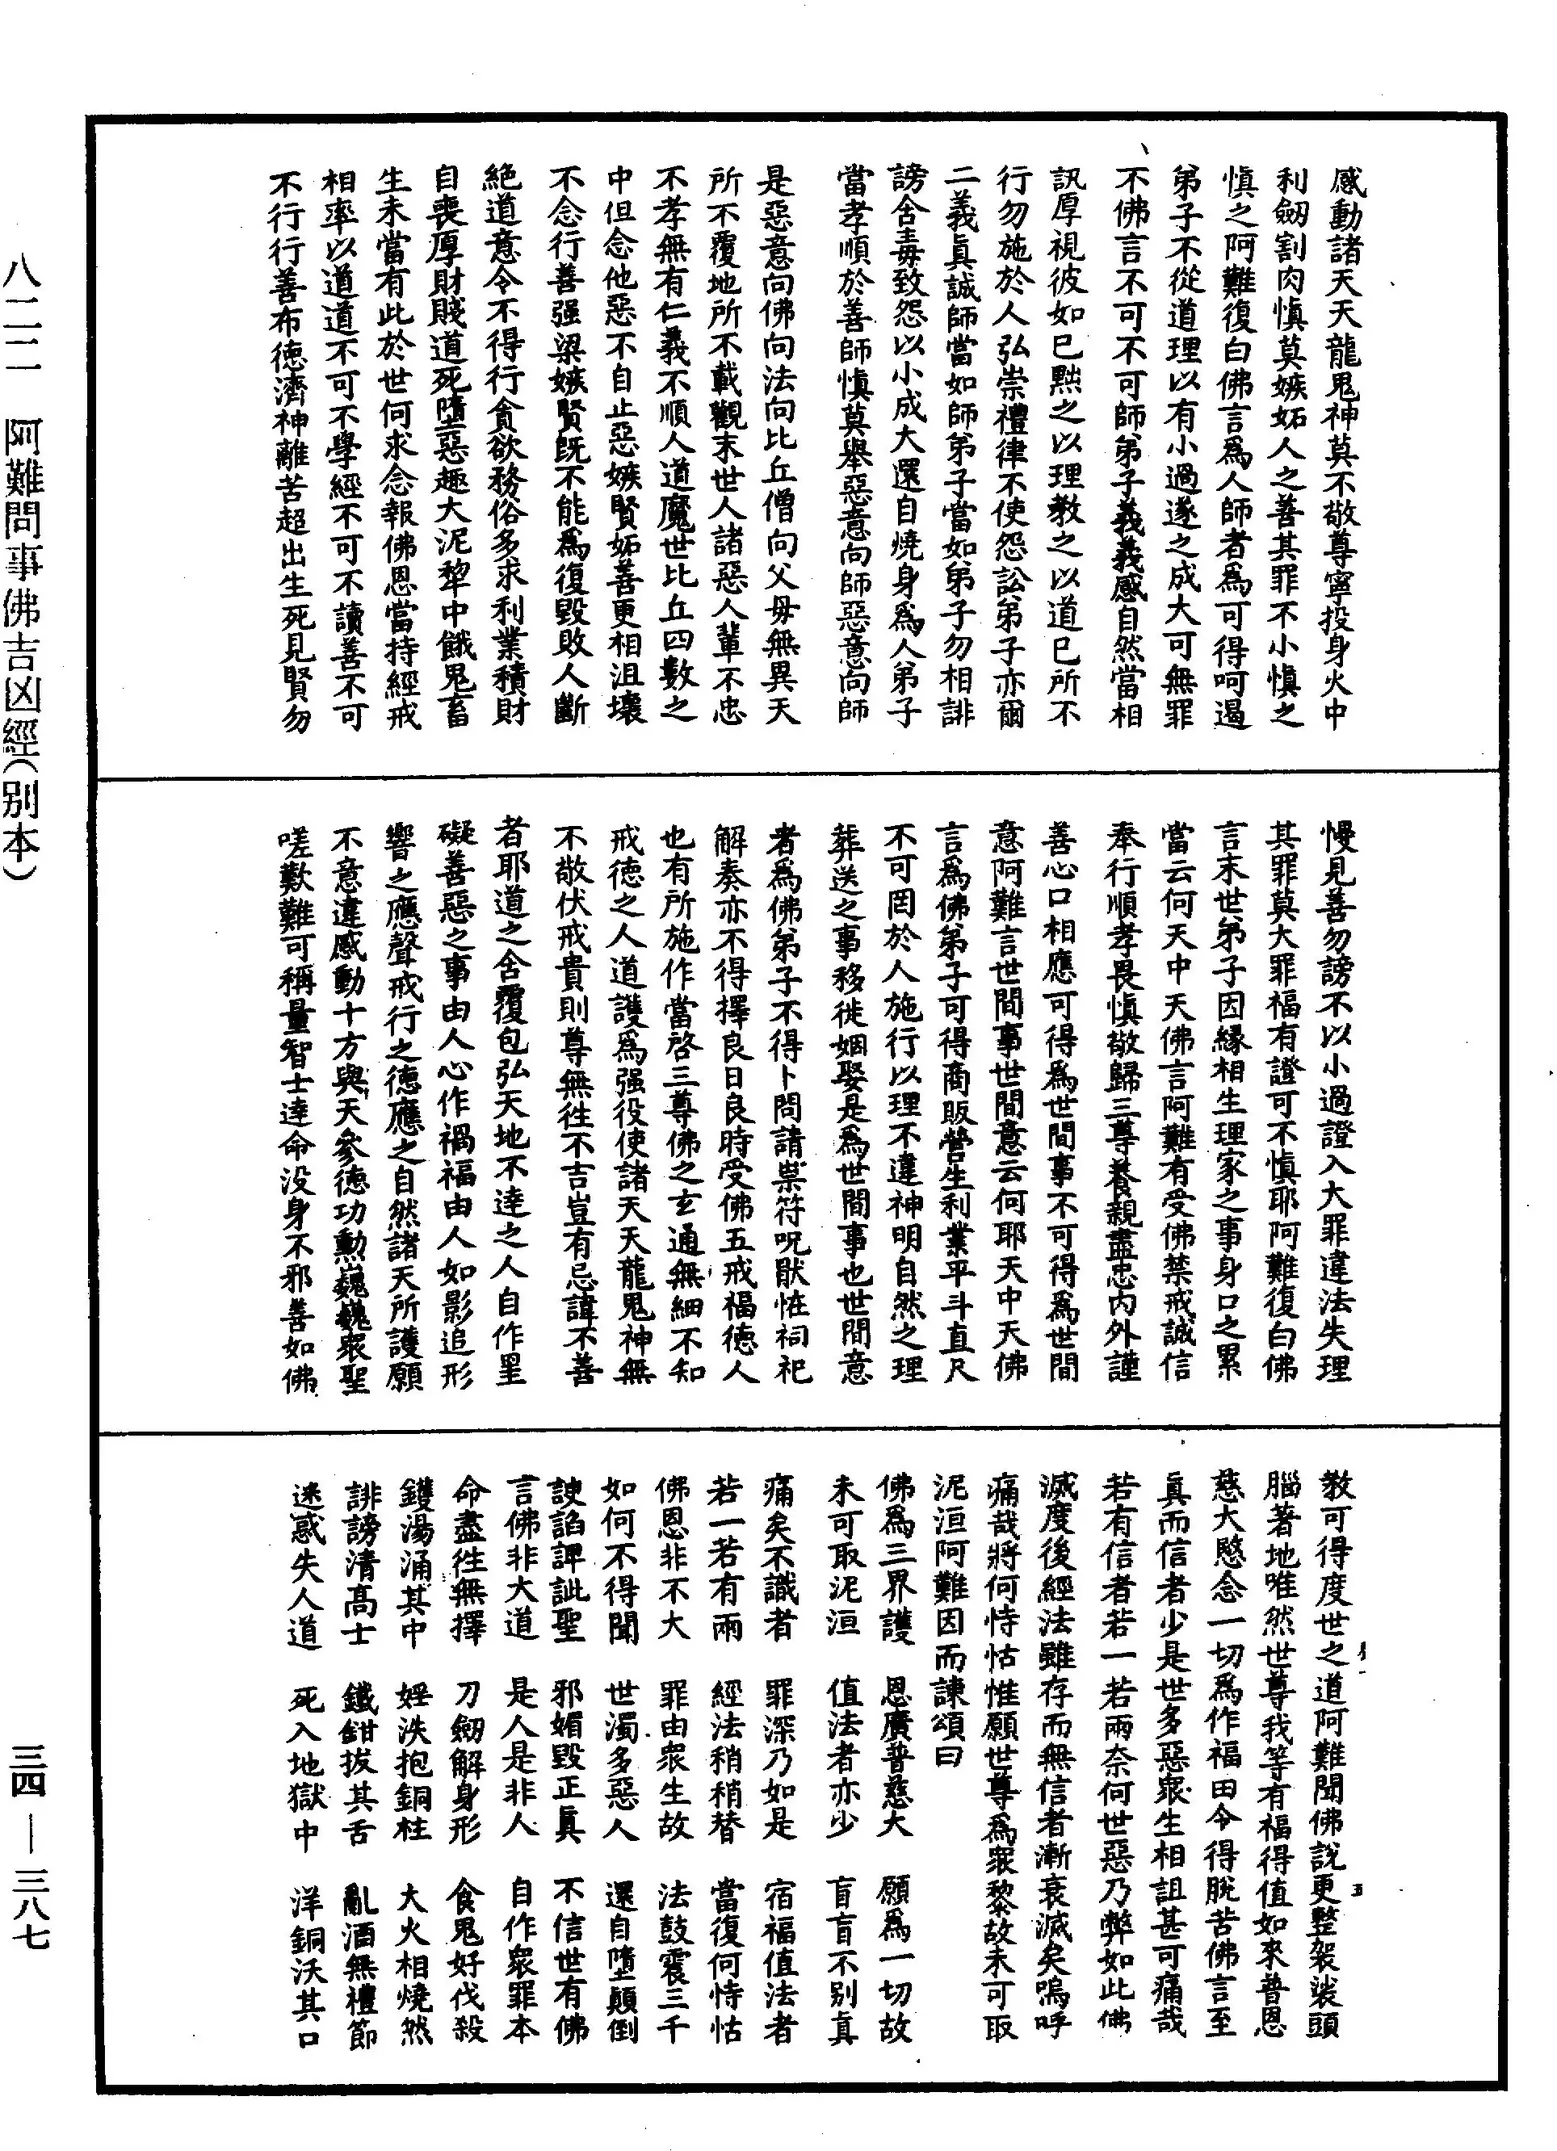 感動諸天天龍鬼神莫不敬尊寧投身火中
利劒割肉慎莫嫉妬人之善其罪不小慎之
慎之阿難復白佛言爲人師者爲可得呵遏
弟子不從道理以有小過遂之成大可無罪
不佛言不可不可師弟子義義感自然當相
訊厚視彼如已黙之以理教之以道已所不
行勿施於人弘崇禮律不使怨訟弟子亦爾
二義眞誠師當如師弟子當如弟子勿相誹
謗含毒致怨以小成大還自燒身爲人弟子
當孝順於善師慎莫舉惡意向師惡意向師
是惡意向佛向法向比丘僧向父母無異天
所不覆地所不載觀末世人諸惡人輩不忠
不孝無有仁義不順人道魔世比丘四數之
中但念他惡不自止惡嫉賢妬善更相沮壞
不念行善强梁嫉賢旣不能爲復毀敗人斷
絶道意令不得行貪欲務俗多求利業積財
自喪厚財賤道死墮惡趣大泥犂中餓鬼畜
生未當有此於世何求念報佛恩當持經戒
相率以道道不可不學經不可不讀善不可
不行行善布德濟神離苦超出生死見賢勿
慢見善勿謗不以小過證入大罪違法失理
其罪莫大罪福有證可不慎耶阿難復白佛
言末世弟子因縁相生理家之事身口之累
當云何天中天佛言阿難有受佛禁戒誠信
奉行順孝畏慎敬歸三尊養親盡忠内外謹
善心口相應可得爲世間事不可得爲世間
意阿難言世間事世間意云何耶天中天佛
言爲佛弟子可得商販營生利業平斗直尺
不可罔於人施行以理不違神明自然之理
葬送之事移徙姻娶是爲世間事也世間意
者爲佛弟子不得卜問請祟符呪猒恠祠祀
解奏亦不得擇良日良時受佛五戒福德人
也有所施作當啓三尊佛之玄通無細不知
戒德之人道護爲强役使諸天天龍鬼神無
不敬伏戒貴則尊無徃不吉豈有忌諱不善
者耶道之含覆包弘天地不達之人自作罣
礙善惡之事由人心作禍福由人如影追形
響之應聲戒行之德應之自然諸天所護願
不意違感動十方與天參德功勲巍巍衆聖
嗟歎難可稱量智士達命没身不邪善如佛
教可得度世之道阿難聞佛說更整袈裟頭
腦著地唯然世尊我等有福得值如來普恩
慈大愍念一切爲作福田令得脫苦佛言至
眞而信者少是世多惡衆生相詛甚可痛哉
若有信者若一若兩奈何世惡乃弊如此佛
滅度後經法雖存而無信者漸衰滅矣嗚呼
痛哉將何恃怙惟願世尊爲衆黎故未可取
泥洹阿難因而諫頌曰
佛爲三界護　恩廣普慈大　願爲一切故
未可取泥洹　值法者亦少　盲盲不别眞
痛矣不識者　罪深乃如是　宿福值法者
若一若有兩　經法稍稍替　當復何恃怙
佛恩非不大　罪由衆生故　法鼓震三千
如何不得聞　世濁多惡人　還自墮顛倒
諛諂諀訿聖　邪媚毀正眞　不信世有佛
言佛非大道　是人是非人　自作衆罪本
命盡徃無擇　刀劒解身形　食鬼好伐殺
鑊湯涌其中　婬泆抱銅柱　大火相燒然
誹謗清髙士　鐵鉗拔其舌　亂酒無禮節
迷惑失人道　死入地獄中　洋銅沃其口
八二二　阿難問事佛吉凶經（别本）
三四—三八七